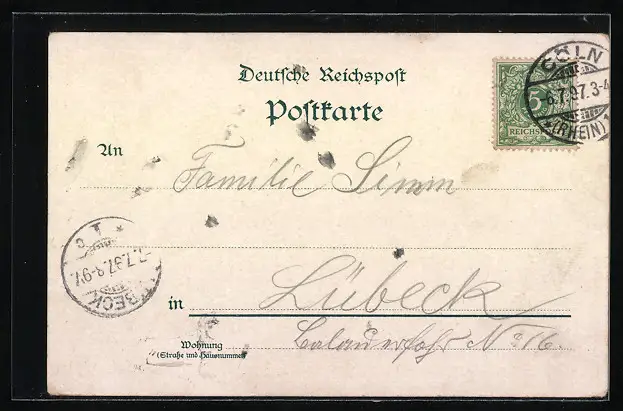 Deutsche Reichspost
Postkarte
CÖLN
6.7.97.3-4
(RHEIN)
5
REICHSPOST
An
Familie Simm
7.7.97.8-9V.
BECK
in Lübeck
Wohnung
(Straße und Hausnummer)
No 16.